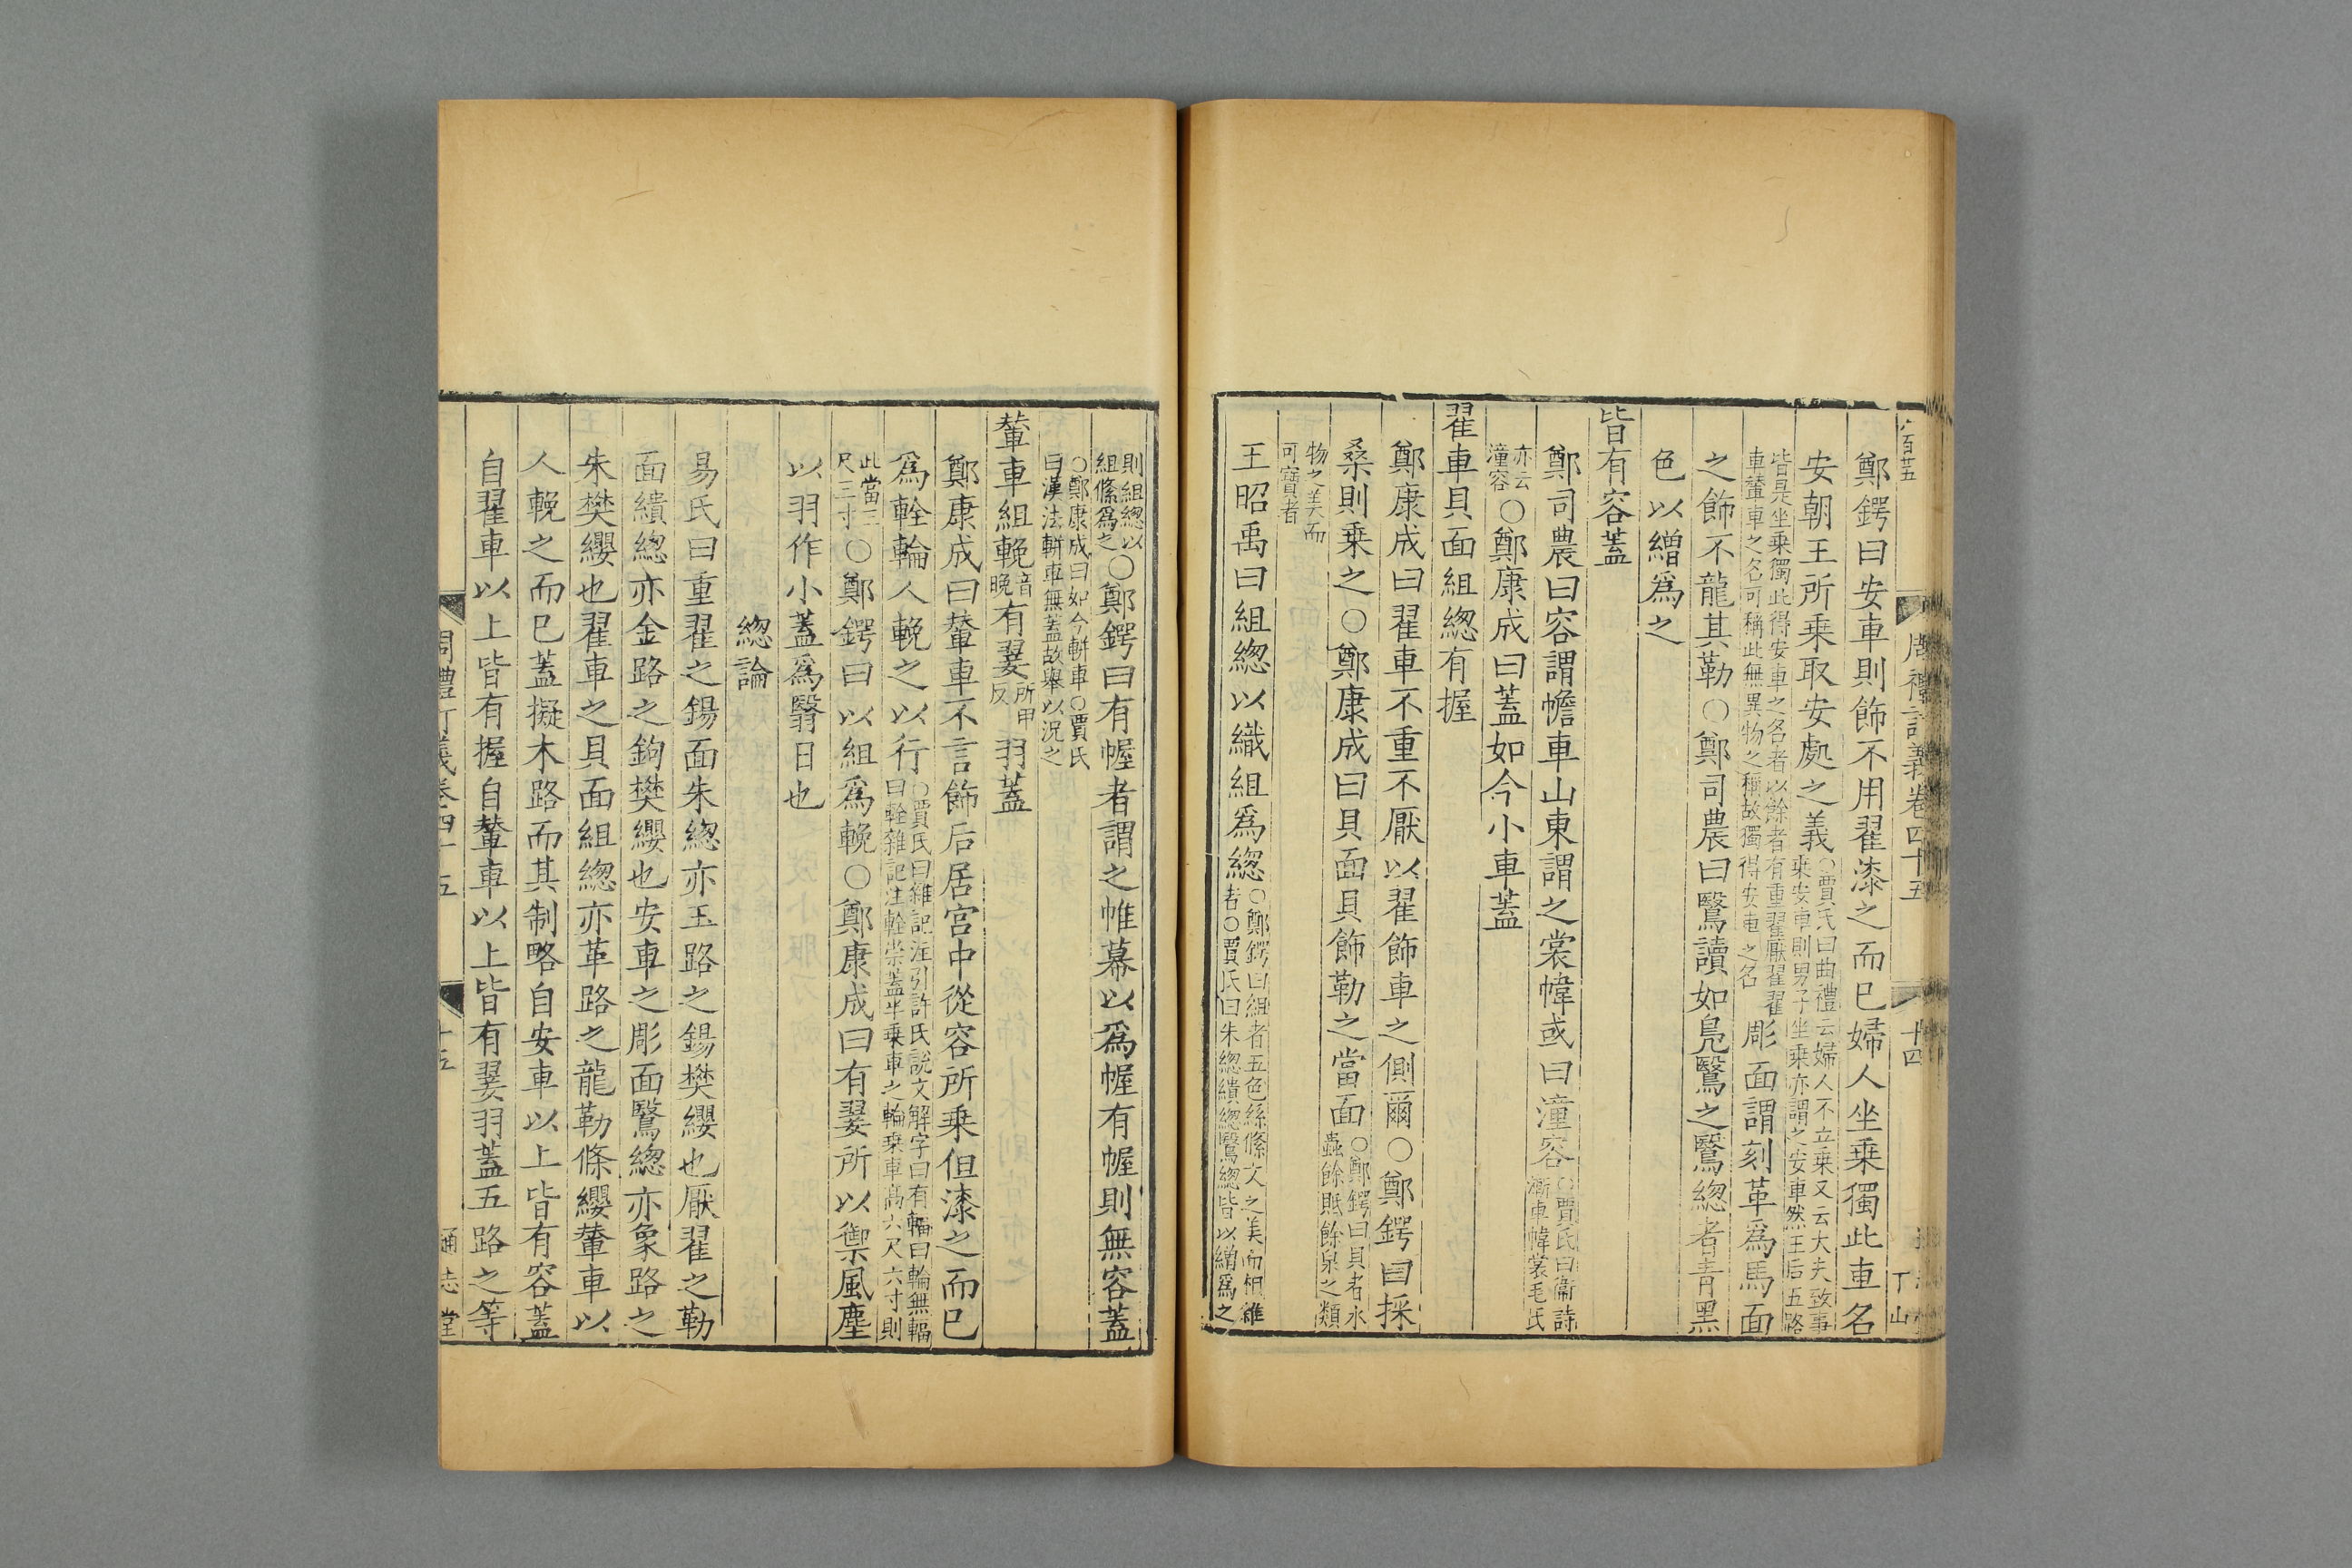 鄭鍔曰安車則飾不用翟漆之而巳婦人坐乗獨此車名
安朝王所乗取安處之義○賈氏曰曲禮云婦人不立乗又云大夫致事
乗安車則男子坐乗亦謂之安車然王后五路
皆是坐乗獨此得安車之名者以餘者有重翟厭翟翟
車輦車之名可稱此無異物之稱故獨得安車之名彫面謂刻革爲馬面
之飾不龍其勒○鄭司農曰鷖讀如鳧鷖之鷖緫者青黑
色以繒爲之
皆有容蓋
鄭司農曰容謂幨車山東謂之裳幃或曰潼容○賈氏曰衞詩
漸車幃裳毛氏
亦云
潼容○鄭康成曰蓋如今小車蓋
翟車貝面組緫有握
鄭康成曰翟車不重不厭以翟飾車之側爾○鄭鍔曰採
桑則乗之○鄭康成曰貝面貝飾勒之當面○鄭鍔曰貝者水
蟲餘貾餘泉之類
物之美而
可寶者
王昭禹曰組緫以織組爲緫○鄭鍔曰組者五色絲絛文之美而相雜
者○賈氏曰朱緫繢緫鷖緫皆以繒爲之
周禮訂義卷四十五
十四
則組緫以
組絛爲之○鄭鍔曰有幄者謂之帷幕以爲幄有幄則無容蓋
○鄭康成曰如今軿車○賈氏
曰漢法軿車無蓋故舉以況之
輦車組輓音
晚有翣所甲
反羽蓋
鄭康成曰輦車不言飾后居宫中從容所乗但漆之而巳
爲輇輪人輓之以行○賈氏曰雜記注引許氏說文解字曰有輻曰輪無輻
曰輇雜記注輇崇蓋半乗車之輪乗車高六尺六寸則
此當三
尺三寸○鄭鍔曰以組爲輓○鄭康成曰有翣所以禦風塵
以羽作小蓋爲翳日也
緫論
易氏曰重翟之鍚面朱緫亦玉路之鍚樊纓也厭翟之勒
面繢緫亦金路之鉤樊纓也安車之彫面鷖緫亦象路之
朱樊纓也翟車之貝面組緫亦革路之龍勒絛纓輦車以
人輓之而巳蓋擬木路而其制略自安車以上皆有容蓋
自翟車以上皆有握自輦車以上皆有翣羽蓋五路之等
周禮訂義卷四十五
十五
通志堂